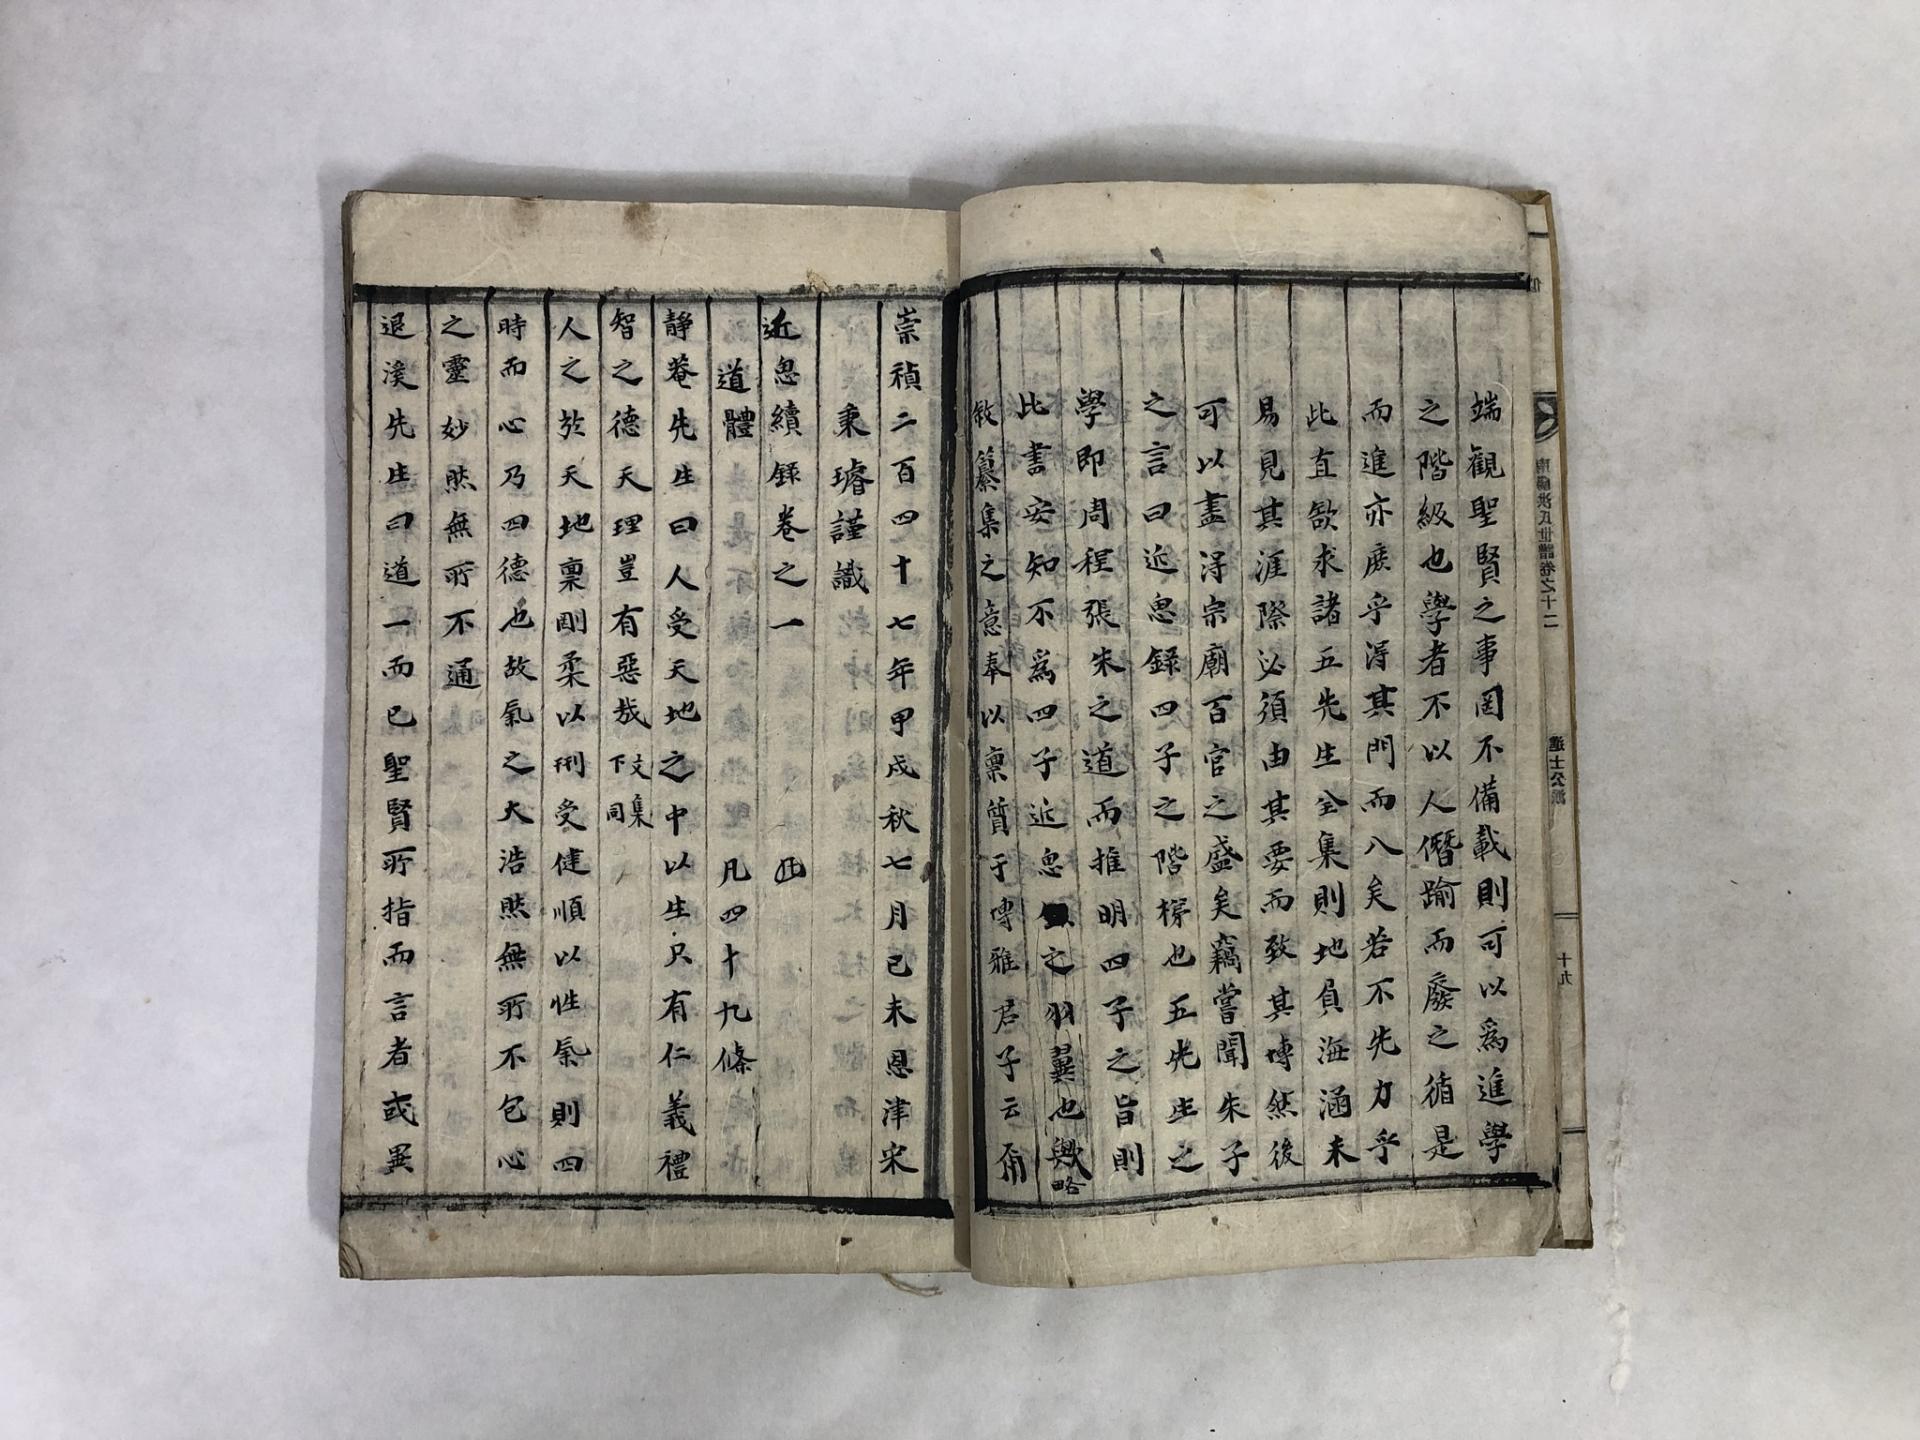 端觀聖賢之事罔不備載則可以爲進學
之階級也學者不以人僭踰而廢之循是
而進亦庶乎得其門而入矣若不先力乎
此直欲求諸五先生全集則地負海涵未
易見其涯際必須由其要而致其博然後
可以盡得宗廟百官之盛矣竊嘗聞朱子
之言曰近思録四子之階梯也五先生之
學即周程張朱之道而推明四子之旨則
此書安知不爲四子近思録之羽翼也歟略
敘纂集之意奉以稟質于博雅君子云爾
崇禎二百四十七年甲戌秋七月己未恩津宋
秉璿謹識
近思續録卷之一
道體 凡四十九條
靜菴先生曰人受天地之中以生只有仁義禮
智之德天理豈有惡哉 文集下同
人之於天地稟剛柔以形受健順以性氣則四
時而心乃四德也故氣之大浩然無所不包心
之靈妙然無所不通
退溪先生曰道一而已聖賢所指而言者或異
洪氏世譜卷之十二
進士公派
十九